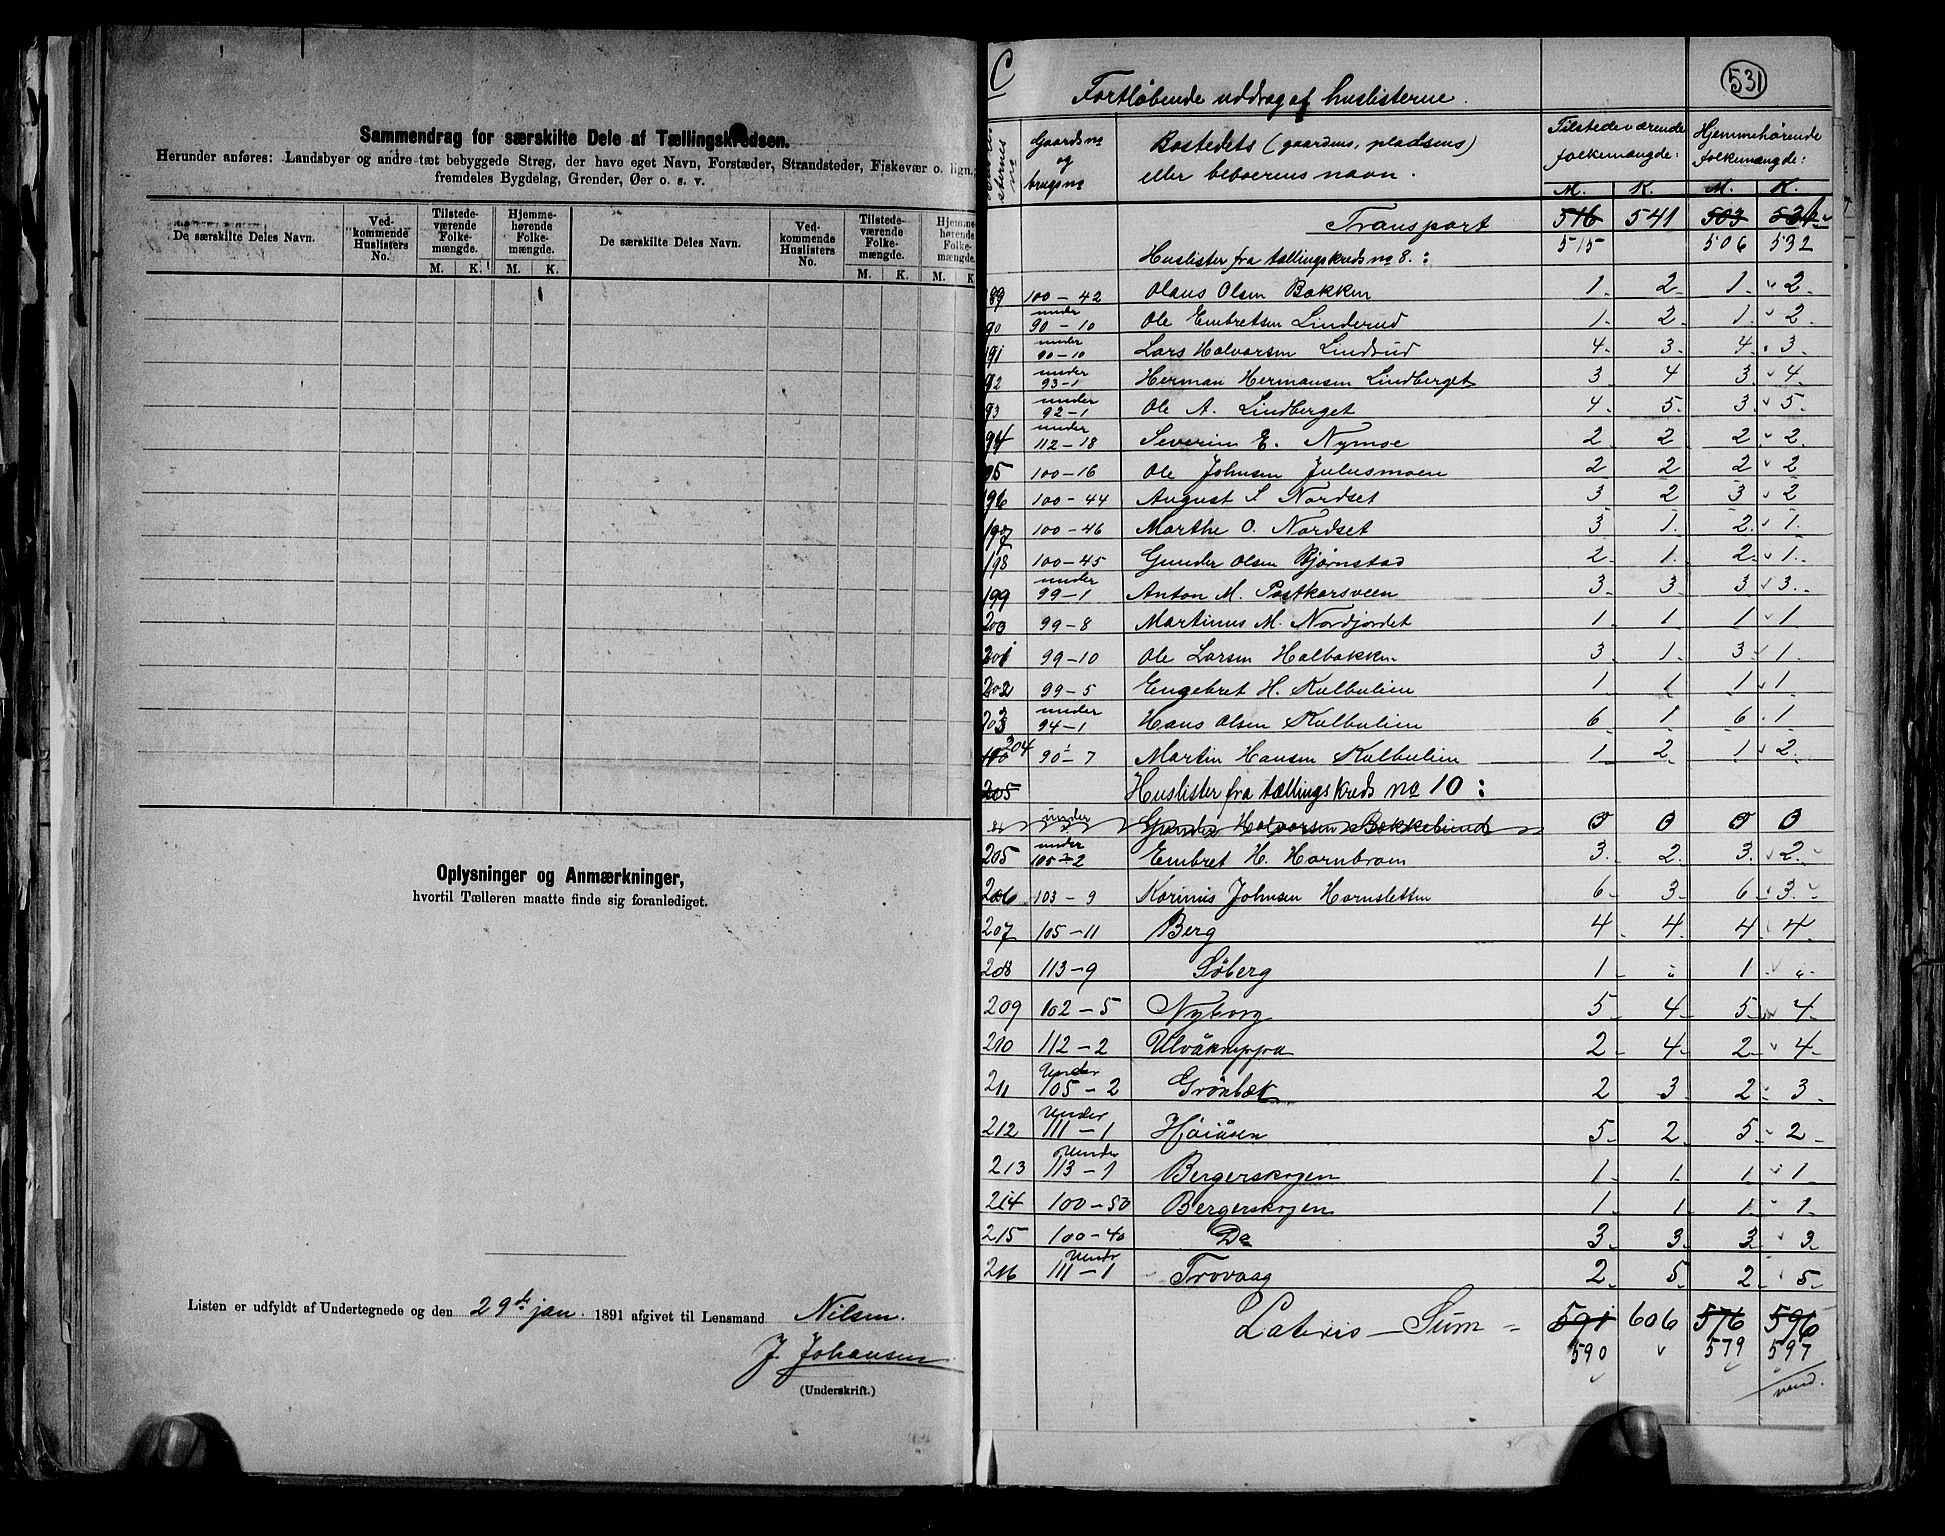 Sammendrag for særskilte Dele af Tællingskredsen.
Herunder anføres: Landsbyer og andre tæt bebyggede Strøg, der have eget Navn, Forstæder, Strandsteder, Fiskevær o. lign.;
fremdeles Bygdelag, Grender, Øer o. s. v.
De særskilte Deles Navn. Ved-kommende Huslisters No. Tilstede-værende Folke-mængde. Hjemme-hørende Folke-mængde. De særskilte Deles Navn. Ved-kommende Huslisters No. Tilstede-værende Folke-mængde. Hjemme-hørende Folke-mængde.
M. K. M. K. M. K. M. K
Oplysninger og Anmærkninger,
hvortil Tælleren maatte finde sig foranlediget.
Listen er udfyldt af Undertegnede og den 29de jan. 1891 afgivet til Lensmand Nilsen.
J Johansen
(Underskrift.)
C
531
Fortløbende uddrag af huslisterne.
Gaards no og brugs no
Bostedets (gaardens, pladsens) eller beboerens navn.
Tilstedeværende folkemængde:
Hjemmehørende folkemængde:
M. K. M. K.
Transport 516 541 503 531
515 506 532
Huslister fra tællingskreds no 8. :
89 100-42 Olaus Olsen Bakken 1 2 1 2
90 under 90-10 Ole Embretsen Linderud 1 2 1 2
191 under 90-10 Lars Halvorsen Lindrud 4 3 4 3
92 under 93-1 Herman Hermansen Lindberget 3 4 3 4
93 under 92-1 Ole A. Lindberget 4 5 3 5
94 under 112-18 Severin E. Nymoe 2 2 2 2
95 100-16 Ole Johnsen Julusmoen 2 2 2 2
196 100-44 August S Nordset 3 2 3 2
197 100-46 Marthe O. Nordset 3 1 2 1
198 100-45 Gunder Olsen Bjørnstad 2 1 2 1
199 under 99-1 Anton M. Postkorsveen 3 3 3 3
200 99-8 Martinus M. Nordjordet 1 1 1 1
201 99-10 Ole Larsen Halbakken 3 1 3 1
202 99-5 Engebret H. Kulbulien 1 1 1 1
203 under 94-1 Hans Olsen Kulbulien 6 1 6 1
204 90-7 Martin Hansen Kulbulien 1 2 1 2
205 Huslister fra tællingskreds no 10 :
under Gunder Halvorsen Bakkebund 0 0 0 0
205 under 105-2 Embret H. Hornbroen 3 2 3 2
206 103-9 Karinus Johnsen Hornsletten 6 3 6 3
207 105-11 Berg 4 4 4 4
208 113-9 Söberg 1 " 1 "
209 102-5 Nyborg 5 4 5 4
210 112-2 Ulvåknappa 2 4 2 4
211 Under 105-2 Grönbæk 2 3 2 3
212 Under 111-1 Höiåsen 5 2 5 2
213 Under 113-1 Bergerskogen 1 1 1 1
214 100-50 Bergerskogen 1 1 1 1
215 100-40 Do 3 3 3 3
216 Undr 111-1 Trovaag 2 5 2 5
Lateris - Sum = 591 606 576 596
590 579 597
vend.